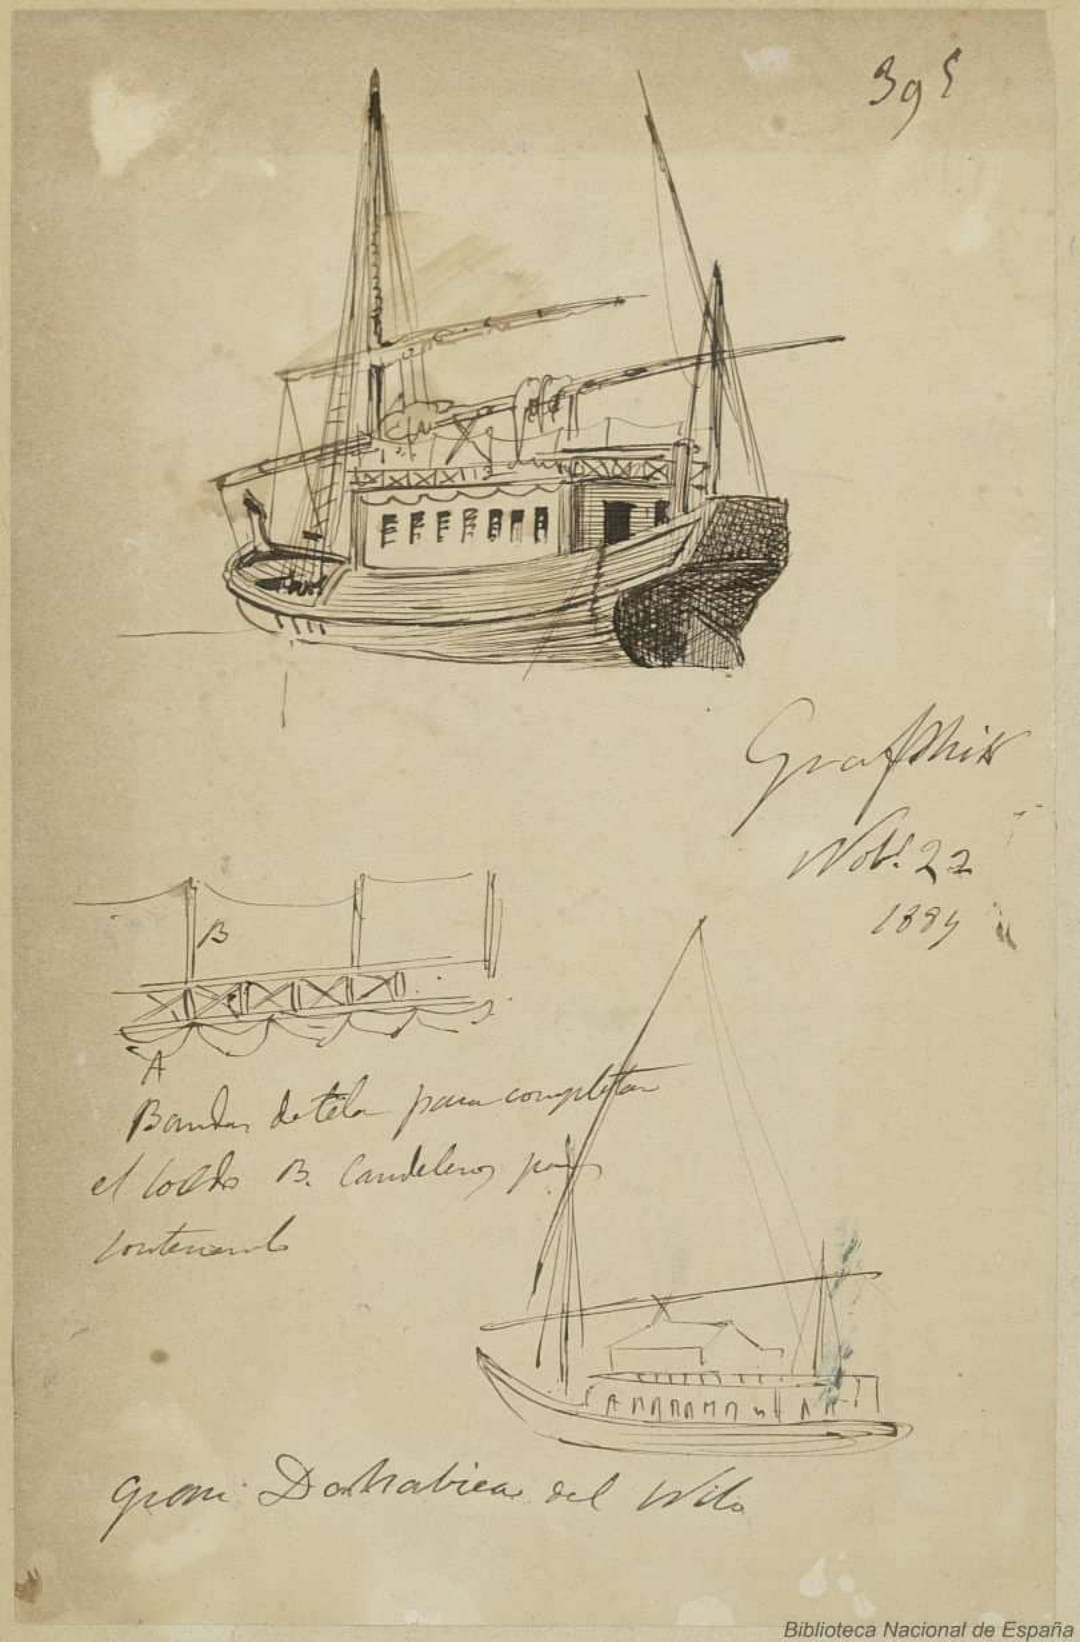 39
Nob. 22
1884
B
A
Bandas de tela para completar
el toldo B. Candeleros para
contenerlo
Gran Dahabiea del Nilo
Biblioteca Nacional de España